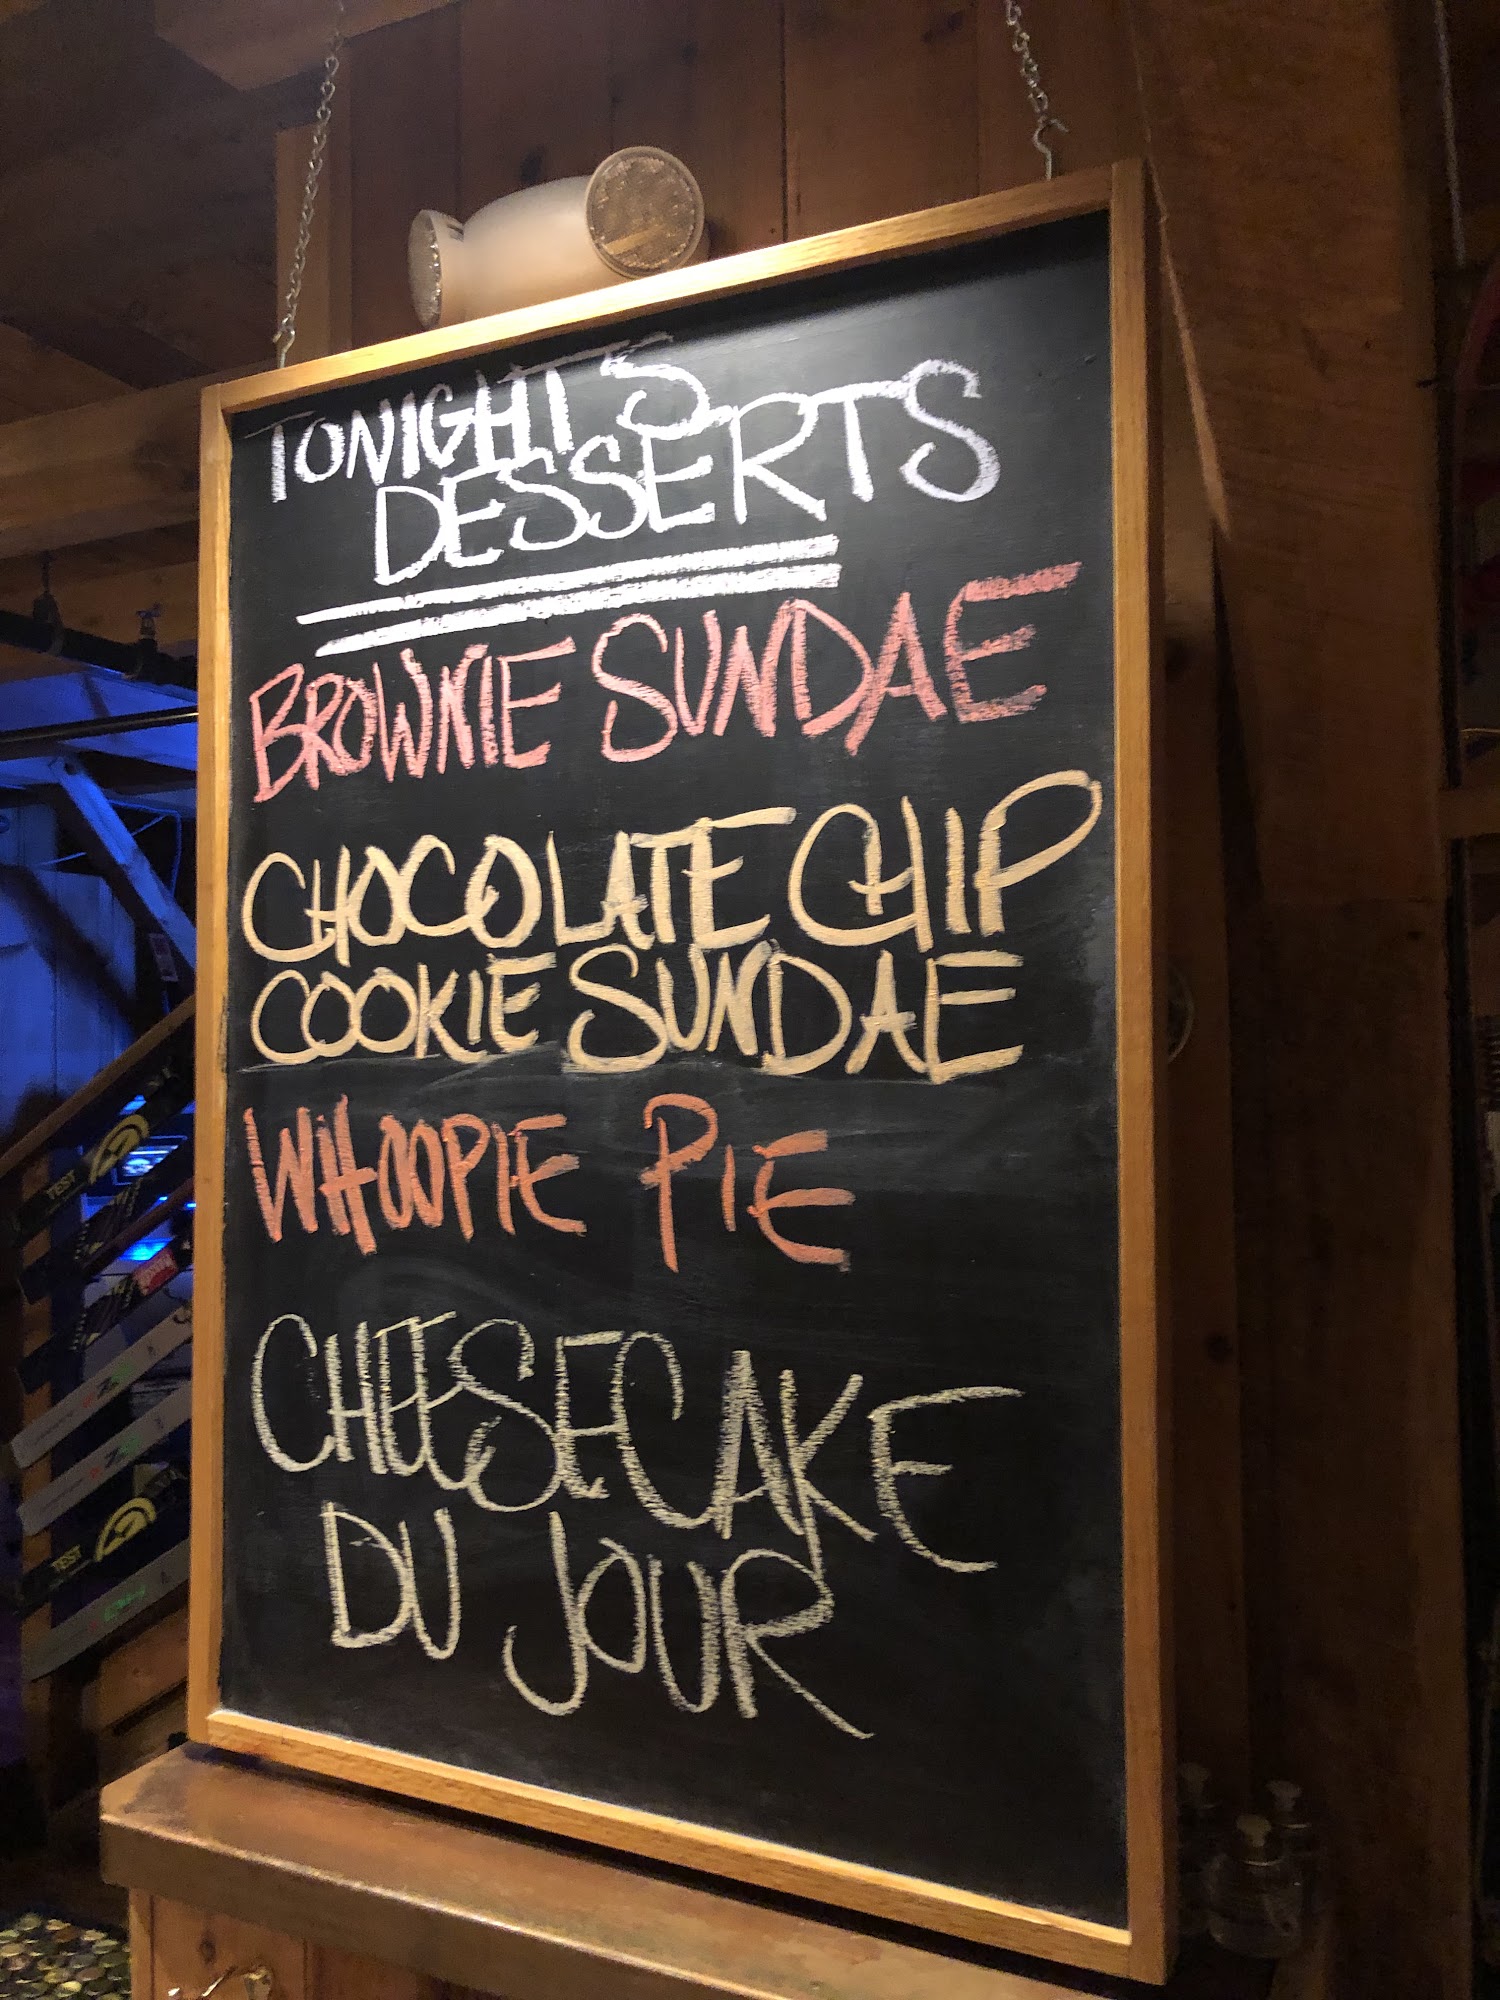 TONIGHT'S
DESSERTS
BROWNIE SUNDAE
CHOCOLATE CHIP
COOKIE SUNDAE
WHOOPIE PIE
CHEESECAKE
DU JOUR
TEST
TEST